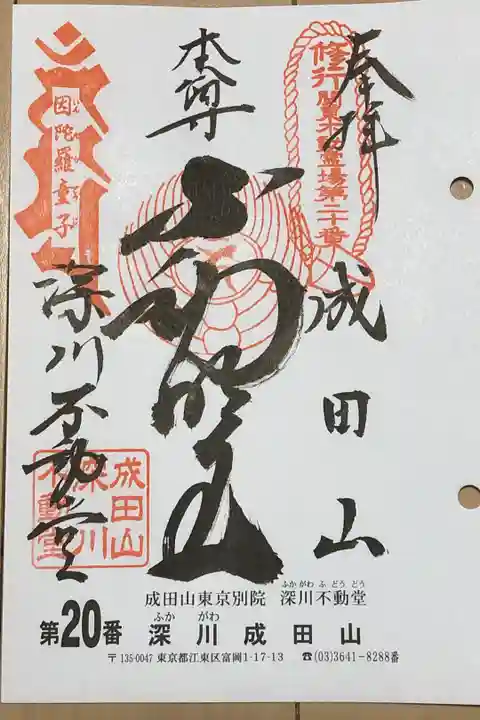 奉拝
修行関東不動霊場第二十番
成田山
本尊
不動明王
因陀羅童子
いんだらどうじ
深川不動堂
成田山
深川
不動堂
ふかがわふどうどう
成田山東京別院 深川不動堂
ふか がわ
第20番 深川成田山
〒135-0047 東京都江東区富岡1-17-13 ☎(03)3641-8288番